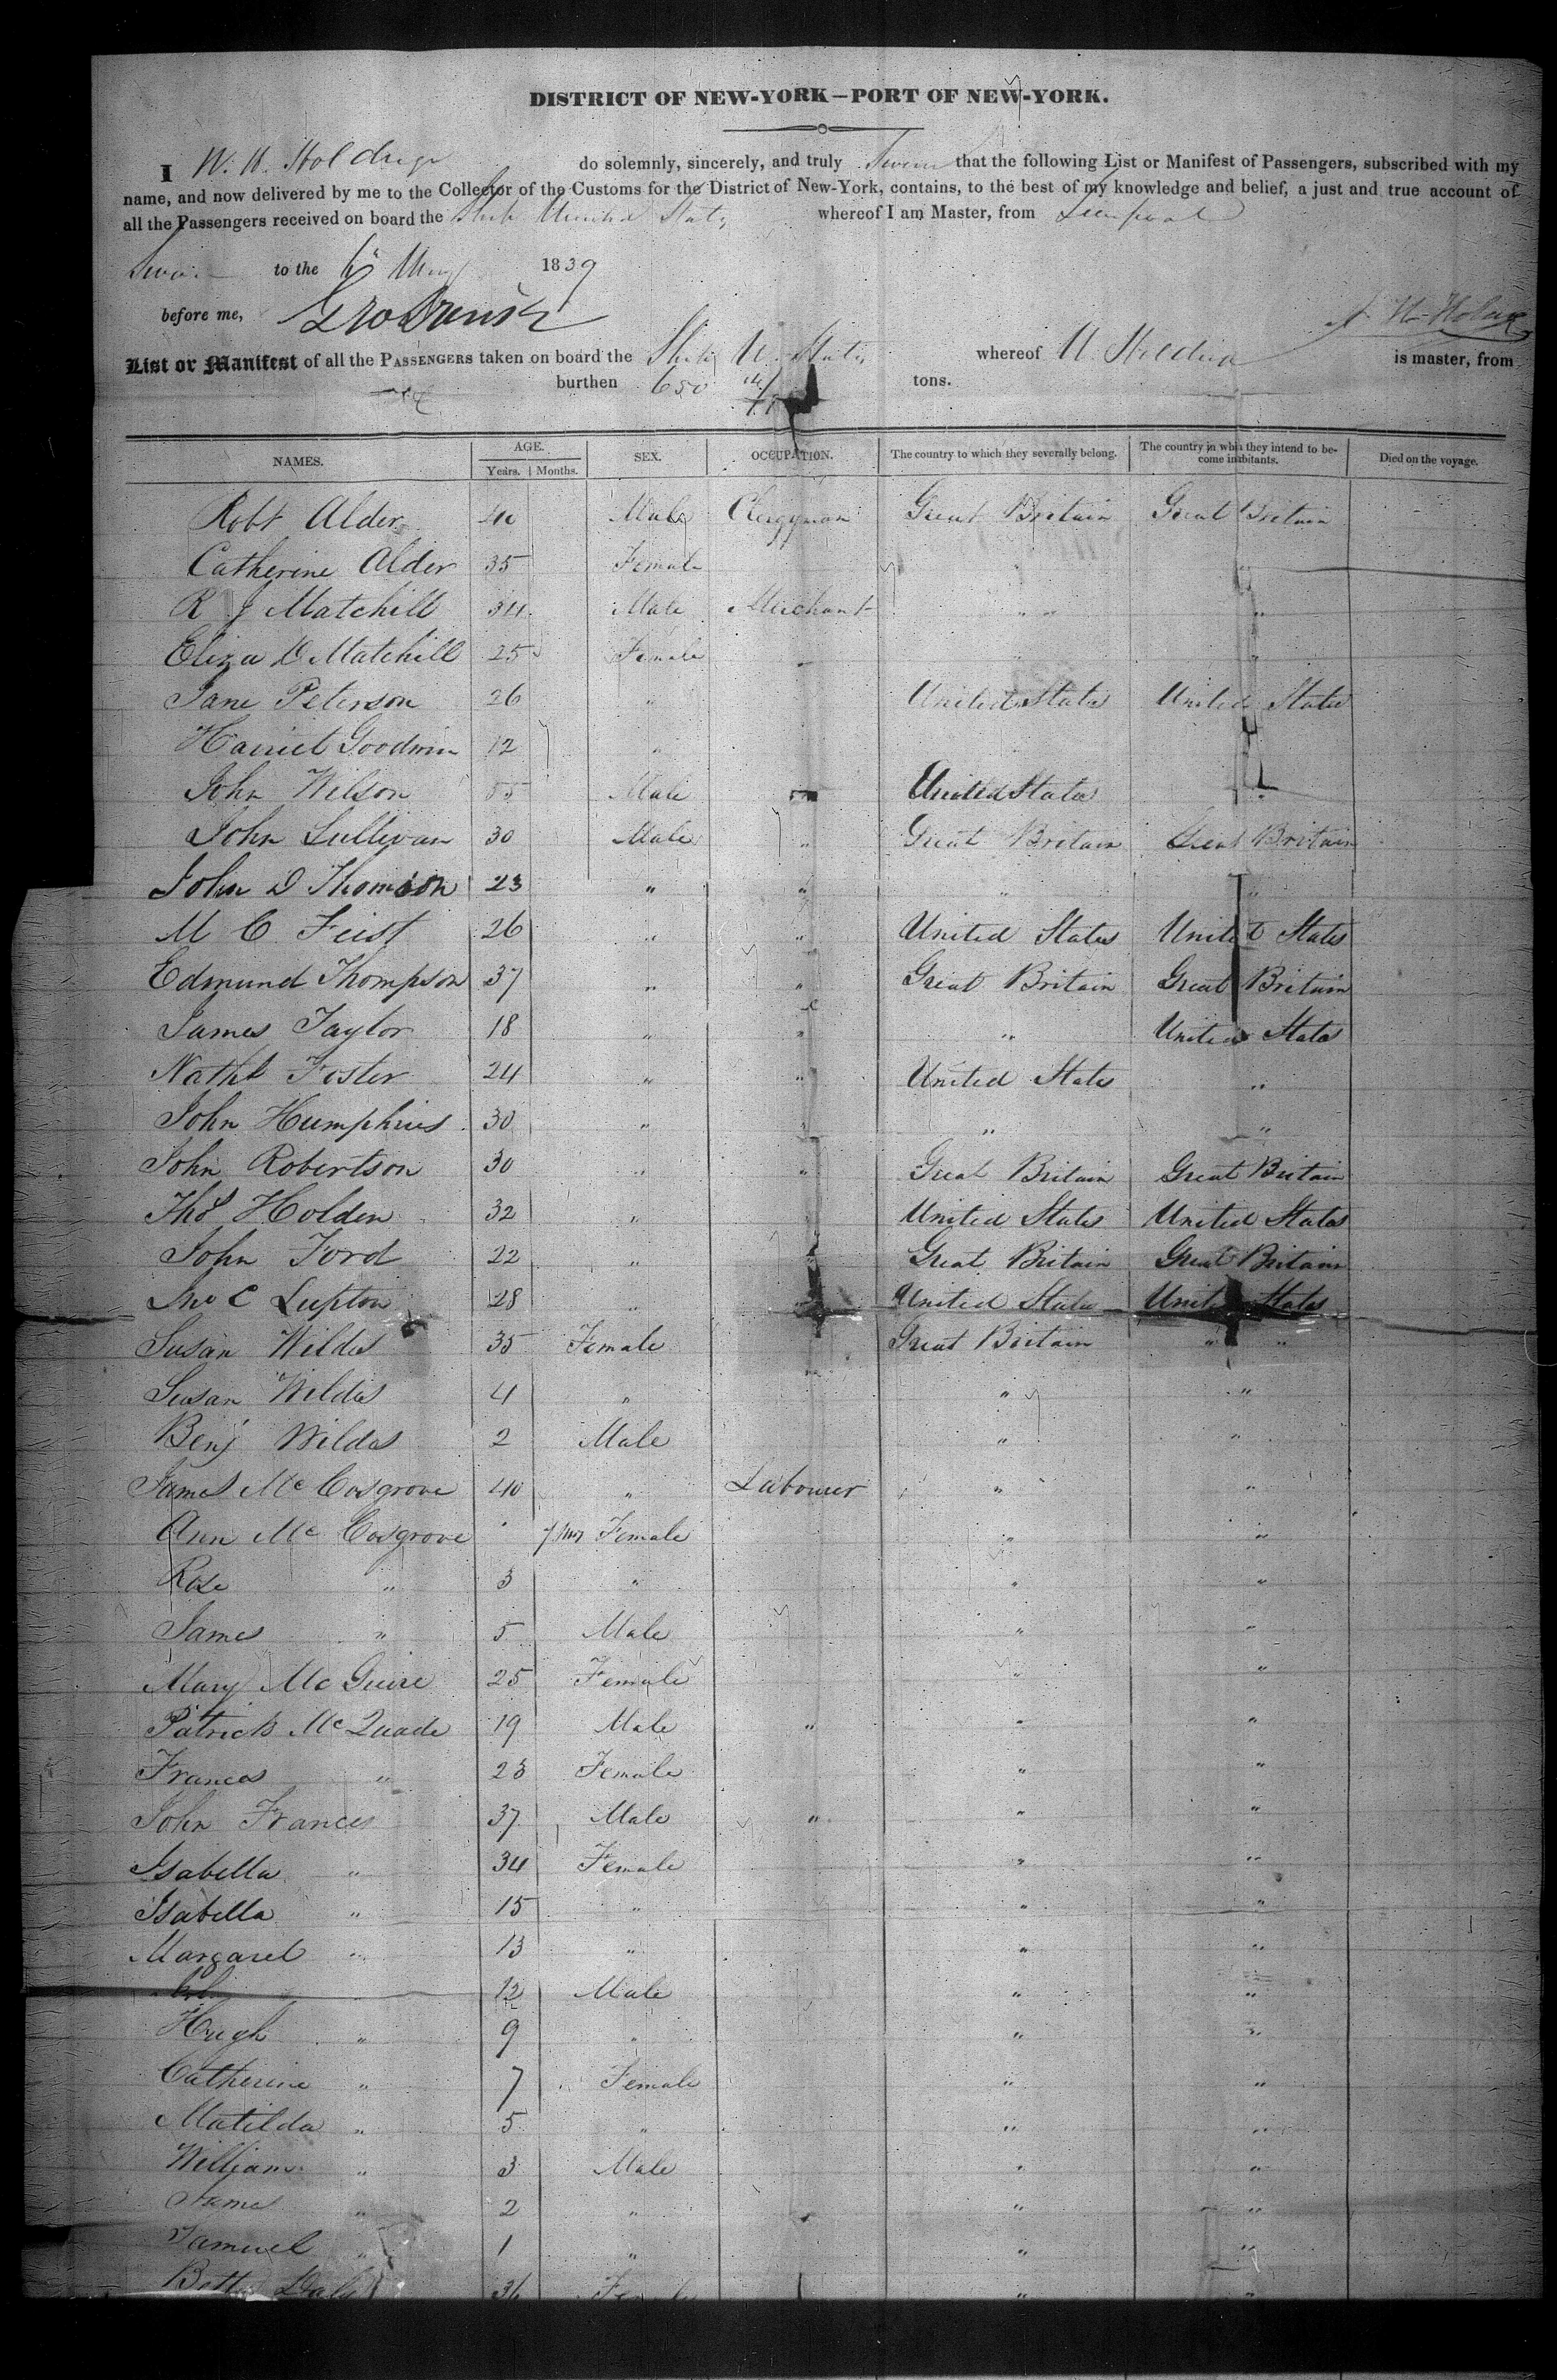 DISTRICT OF NEW-YORK—PORT OF NEW-YORK.
I W. H. Holdrege do solemnly, sincerely, and truly Swear that the following List or Manifest of Passengers, subscribed with my
name, and now delivered by me to the Collector of the Customs for the District of New-York, contains, to the best of my knowledge and belief, a just and true account of
all the Passengers received on board the Ship United States whereof I am Master, from Liverpool
Sworn to the 6th May 1839
before me,
List or Manifest of all the PASSENGERS taken on board the Ship U. States whereof is master, from
burthen 650 tons.
NAMES. AGE. Years. Months. SEX. OCCUPATION. The country to which they severally belong. The country in which they intend to become inhabitants. Died on the voyage.
Robt Alder 40 Male Clergyman Great Britain Great Britain
Catherine Alder 35 Female
R J Matchill 34 Male Merchant " " "
Eliza D Matchill 25 Female " "
Jane Peterson 26 " United States United States
Harriet Goodwin 12 "
John Wilson 55 Male United States
John Sullivan 30 Male " Great Britain Great Britain
John D Thomson 23 " " " "
M C Feist 26 " " United States United States
Edmund Thompson 37 " " Great Britain Great Britain
James Taylor 18 " " " United States
Nathl Foster 24 " " United States "
John Humphries 30 " " " "
John Robertson 30 " " Great Britain Great Britain
Thos Holden 32 " United States United States
John Ford 22 " " Great Britain Great Britain
Jno C Lupton 28 " United States United States
Susan Wildes 35 Female Great Britain " "
Susan Wildes 4 " " "
Benj Wildes 2 Male " "
James Mc Cosgrove 40 " Labourer " "
Ann Mc Cosgrove 7 Mos Female " "
Rose " 3 " " "
James " 5 Male " "
Mary Mc Guire 25 Female " "
Patrick Mc Quade 19 Male " " "
Frances " 23 Female " "
John Frances 37 Male " " "
Isabella " 34 Female " "
Isabella " 15 " " "
Margaret " 13 " " "
12 Male " "
Hugh " 9 " " "
Catherine " 7 Female " "
Matilda " 5 " " "
William " 3 Male " "
James " 2 " " "
Samuel " 1 " " "
Daly 36 Female " "